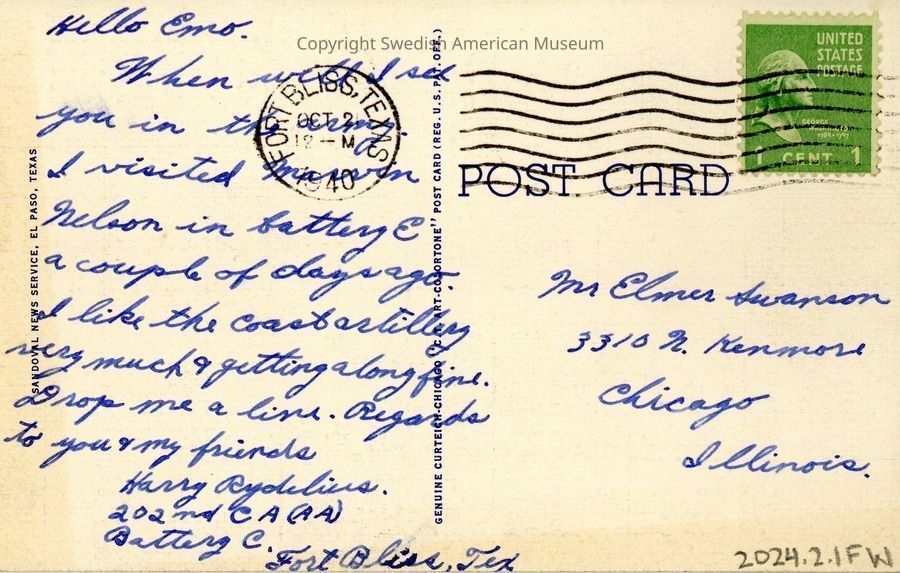 Copyright Swedish American Museum
Hello Emo.
When will I see
you in the army.
I visited Marvin
Nelson in battery E
a couple of days ago.
I like the coast artillery
very much & getting along fine.
Drop me a line. Regards
to you & my friends
Harry Rydelius.
202nd C A (AA)
Battery C.
Fort Bliss, Tex
SANDOVAL NEWS SERVICE, EL PASO, TEXAS
FORT BLISS, TEXAS
OCT 21
12 - M
1940
GENUINE CURTEICH-CHICAGO "C.T. ART-COLORTONE" POST CARD (REG. U.S. PAT. OFF.)
UNITED
STATES
POSTAGE
GEORGE
WASHINGTON
1789-1797
1 CENT 1
POST CARD
Mr Elmer Swanson
3310 N. Kenmore
Chicago
Illinois.
2024.2.1FW